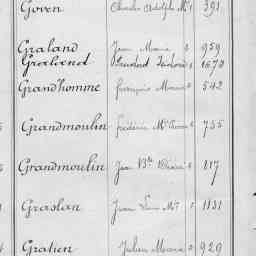 Goven Charles Adolphe Me 1 391
Graland Jean Marie 2 959
Graloend Isidore 2 1670
Grandhomme François Marie 2 542
Grandmoulin Frédéric Me 2 755
Grandmoulin Jean Bte 2 817
Graslan Jean Louis Me 2 1131
Gratien Julien Marie 2 929